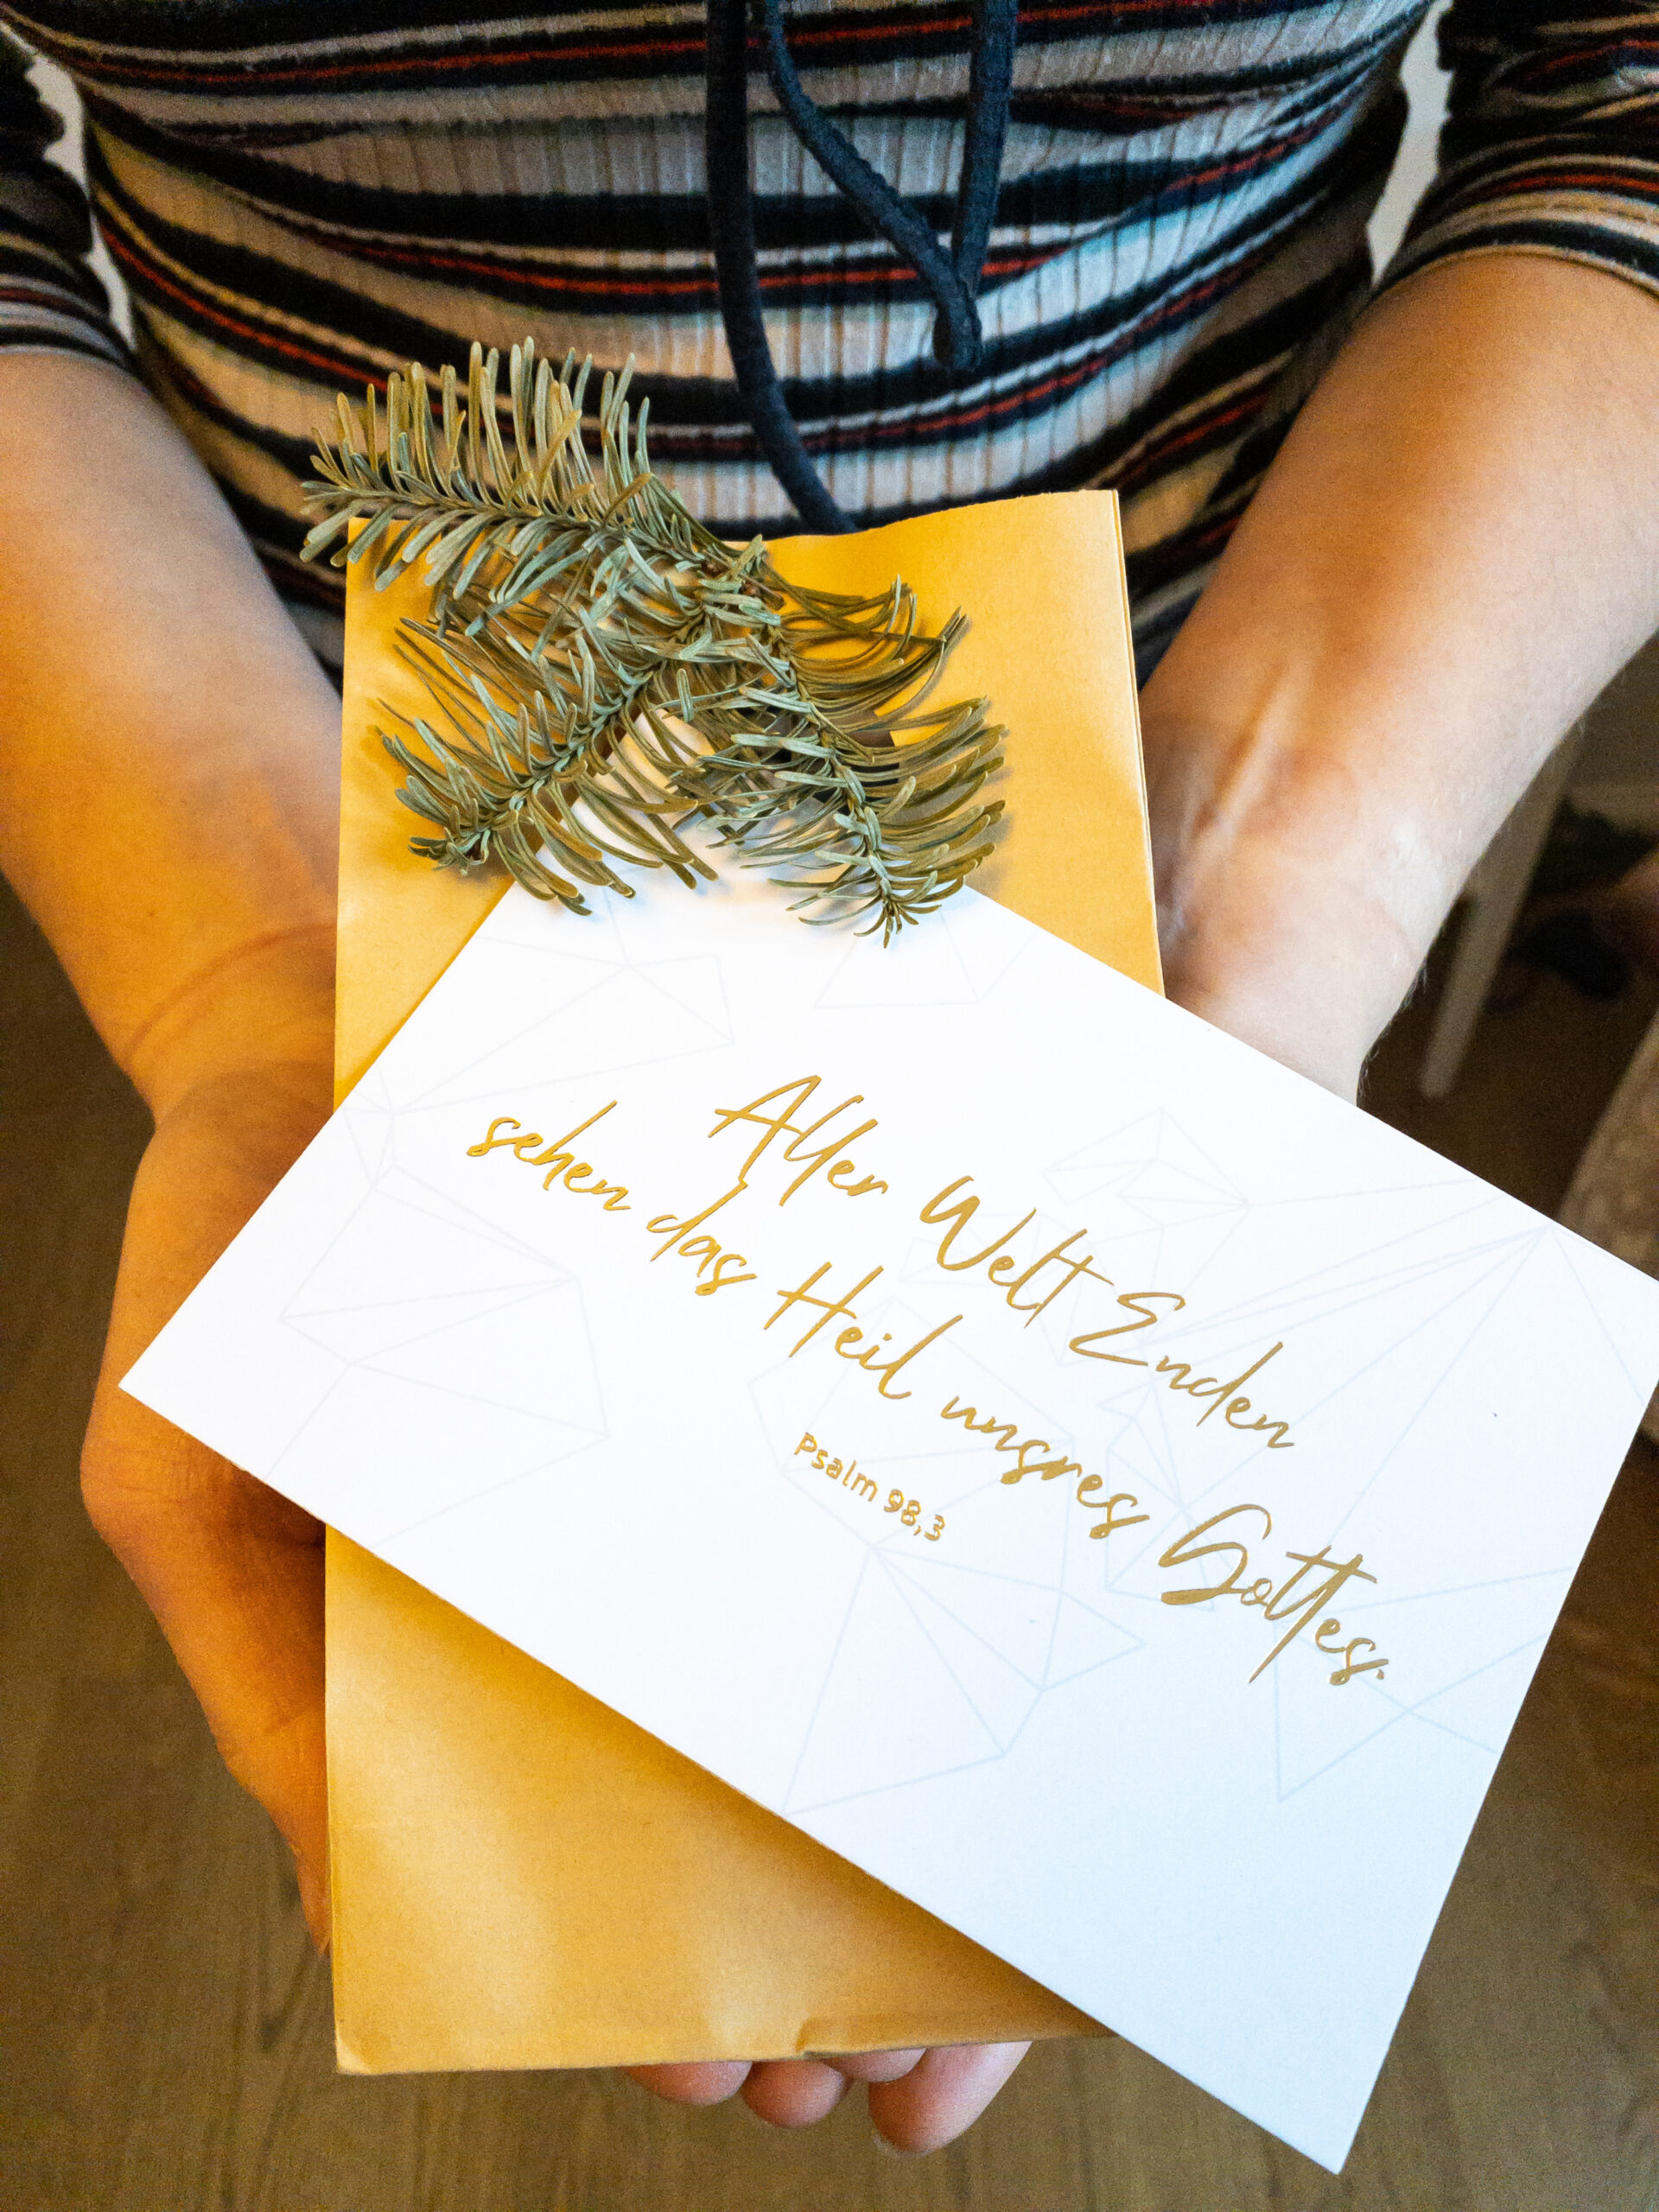 Aller Welt Enden
sehen das Heil unsres Gottes.
Psalm 98,3